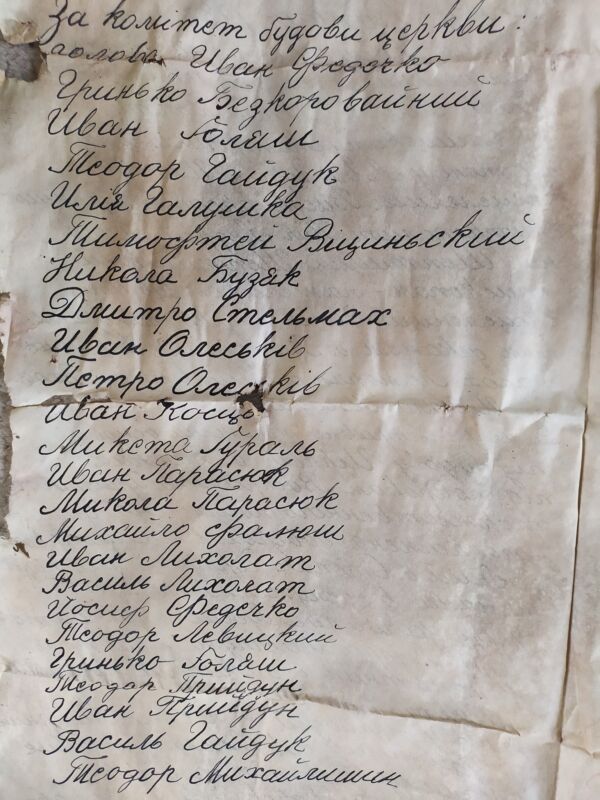 За комітет будови церкви:
голова Иван Федечко
Гринько Безкоровайний
Иван Голяш
Теодор Гайдук
Илія Галушка
Тимофтей Віциньский
Никола Бузяк
Дмитро Стельмах
Иван Олеськів
Петро Олеськів
Иван Косць
Микета Гураль
Иван Парасюк
Микола Парасюк
Михайло Фалюш
Иван Лихолат
Василь Лихолат
Йосиф Федечко
Теодор Левицкий
Гринько Голяш
Теодар Прийдун
Иван Прийдун
Василь Гайдук
Теодор Михайлишин